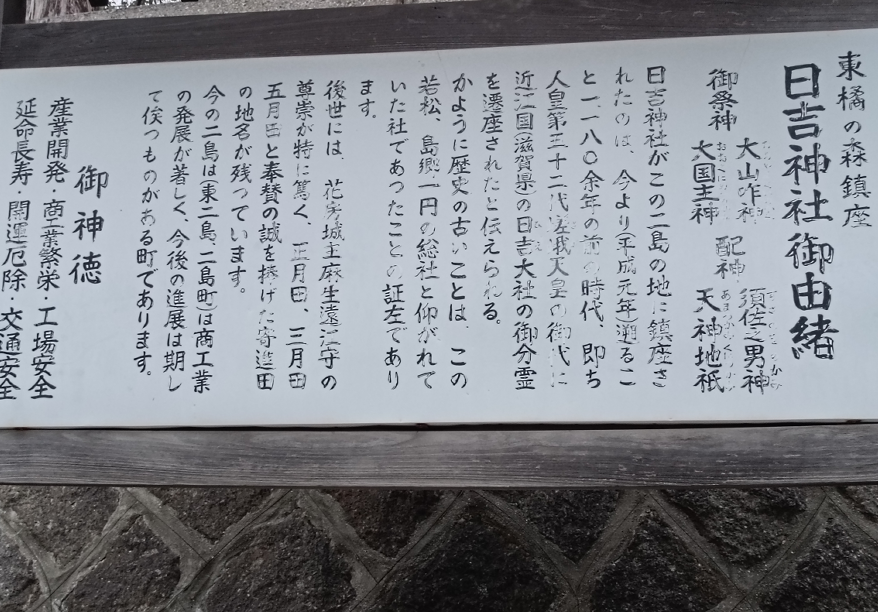 東橘の森鎮座
日吉神社御由緒
御祭神
大山咋神
大国主神
配神
須佐之男神
天神地祇
日吉神社がこの二島の地に鎮座さ
れたのは、今より(平成元年)遡るこ
と一、一八〇余年の前の時代、即ち
人皇第五十二代嵯峨天皇の御代に
近江国(滋賀県)の日吉大社の御分霊
を遷座されたと伝えられる。
かように歴史の古いことは、この
若松、島郷一円の総社と仰がれて
いた社であったことの証左であり
ます。
後世には、花房城主麻生遠江守の
尊崇が特に篤く、正月田、三月田
五月田と奉賛の誠を捧げた寄進田
の地名が残っています。
今の二島は(東二島、二島町)は商工業
の発展が著しく、今後の進展は期し
て俟つものがある町であります。
御神徳
産業開発・商工業繁栄・工場安全
延命長寿・開運厄除・交通安全